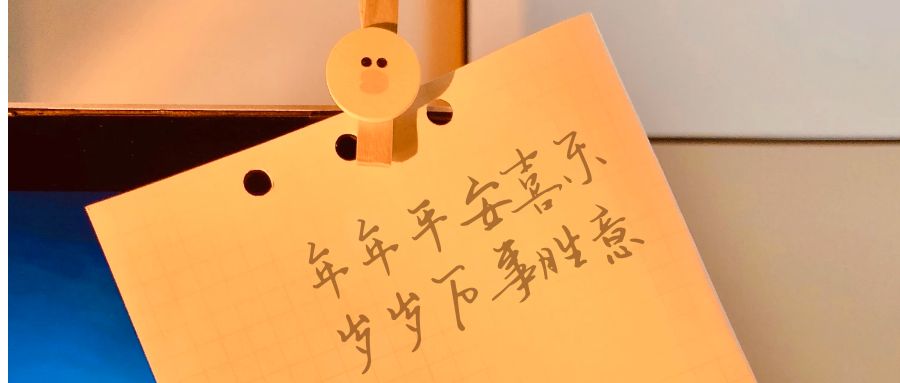 年年平安喜乐
岁岁万事胜意